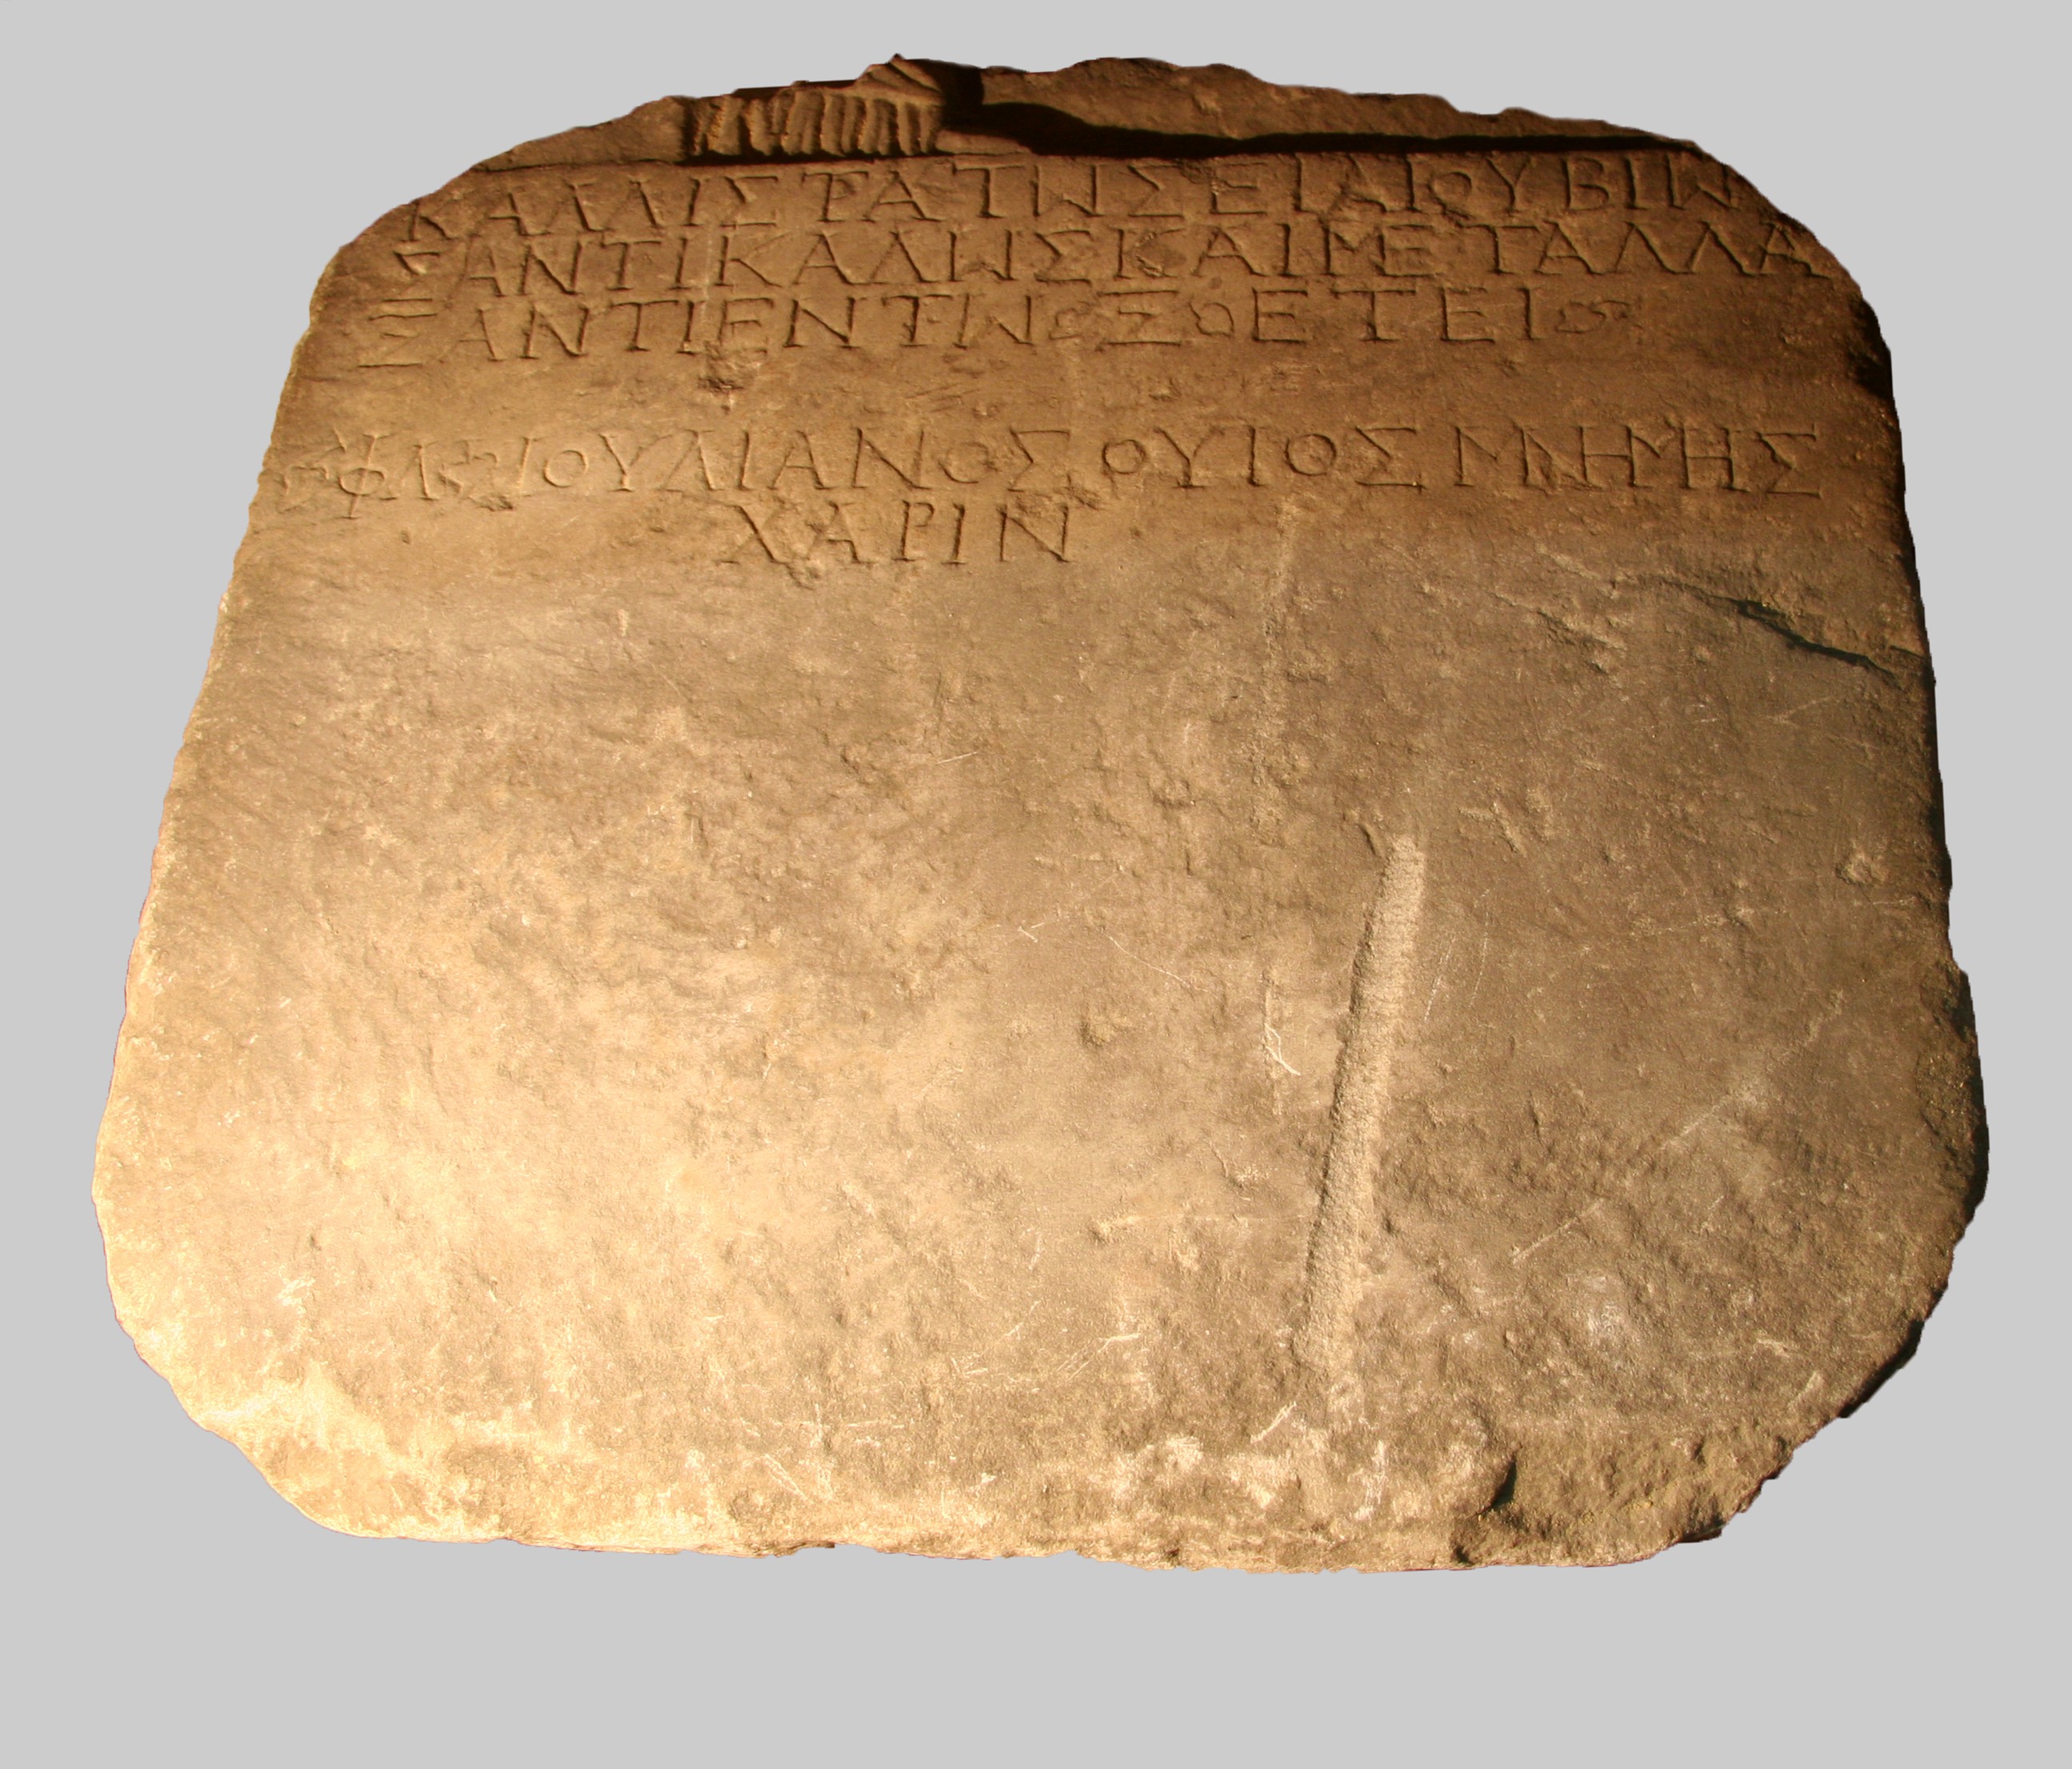 ΚΑΛΛΙΣΤΡΑΤΩΣΕΙΛΙΟΥΒΙΩ
ΣΑΝΤΙΚΑΛΩΣΚΑΙΜΕΤΑΛΛΑ
ΞΑΝΤΙΕΝΤΩ ΣΟ ΕΤΕΙ
ΦΛ ΙΟΥΛΙΑΝΟΣ ΟΥΙΟΣ ΜΝΗΜΗΣ
ΧΑΡΙΝ